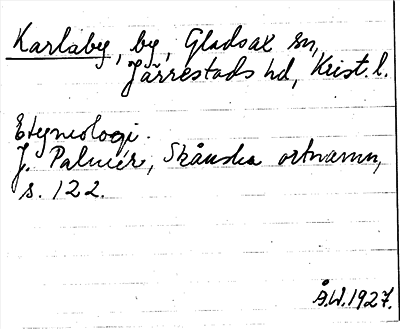 Karlaby, by, Gladsax sn,
Järrestads hd, Krist. l.
Etymologi.
J. Palmér, Skånska ortnamn,
s. 122.
Å.W. 1927.